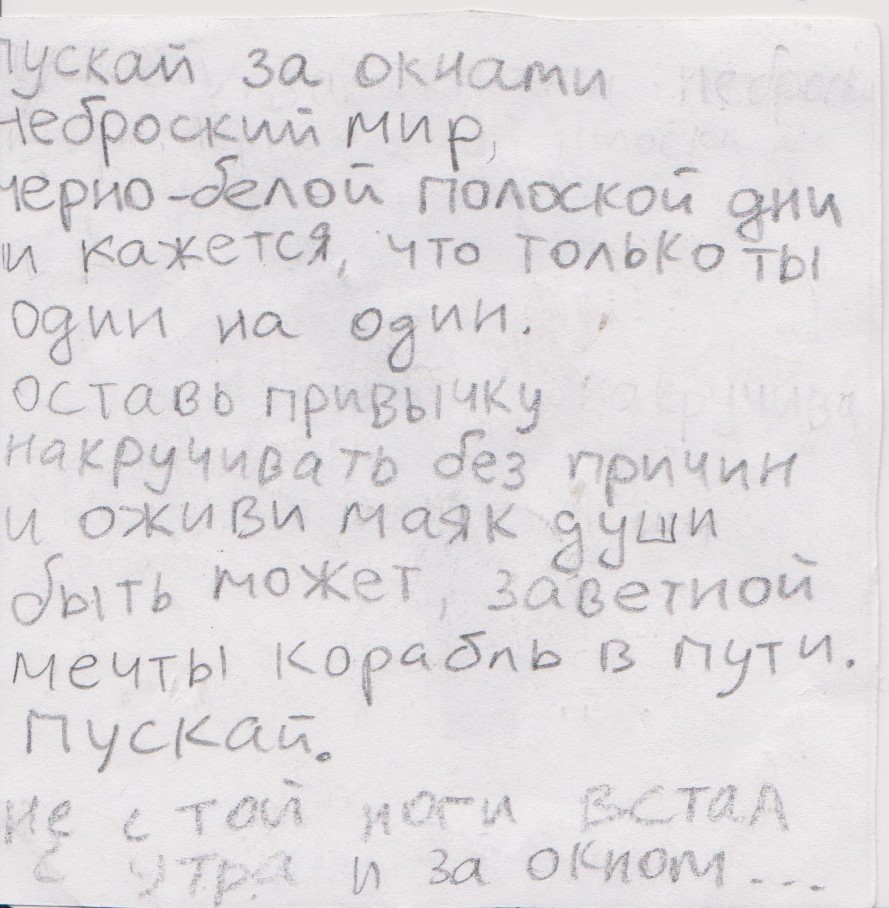 пускай за окнами
неброский мир,
черно-белой полоской дни
и кажется, что только ты
один на один.
оставь привычку
накручивать без причин
и оживи маяк души
быть может, заветной
мечты корабль в пути.
Пускай.
не с той ноги встал
с утра и за окном...